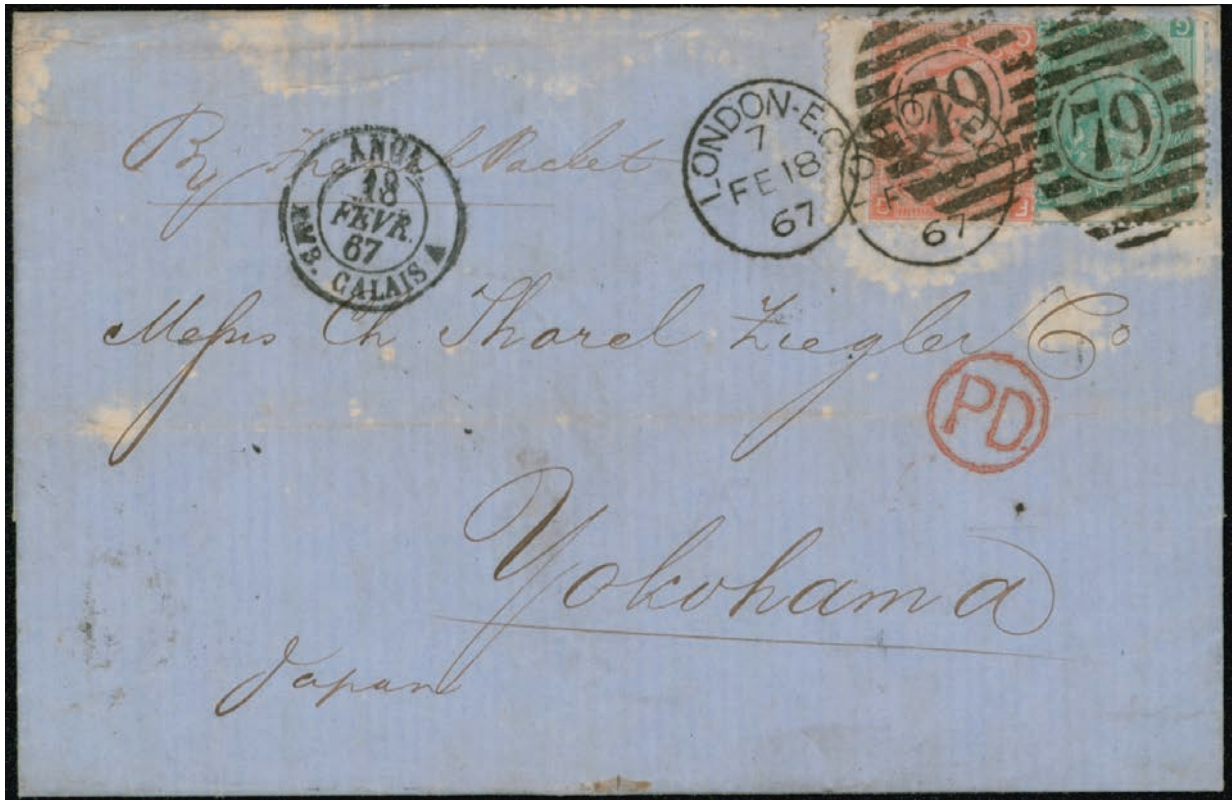 By French Packet
ANGL.
18
FEVR.
67
AMB. CALAIS
LONDON-E.C
7
FE 18
67
79
LONDON-EC
FE 18
67
79
Messrs Ch Thorel Ziegler Co
PD
Yokohama
Japan